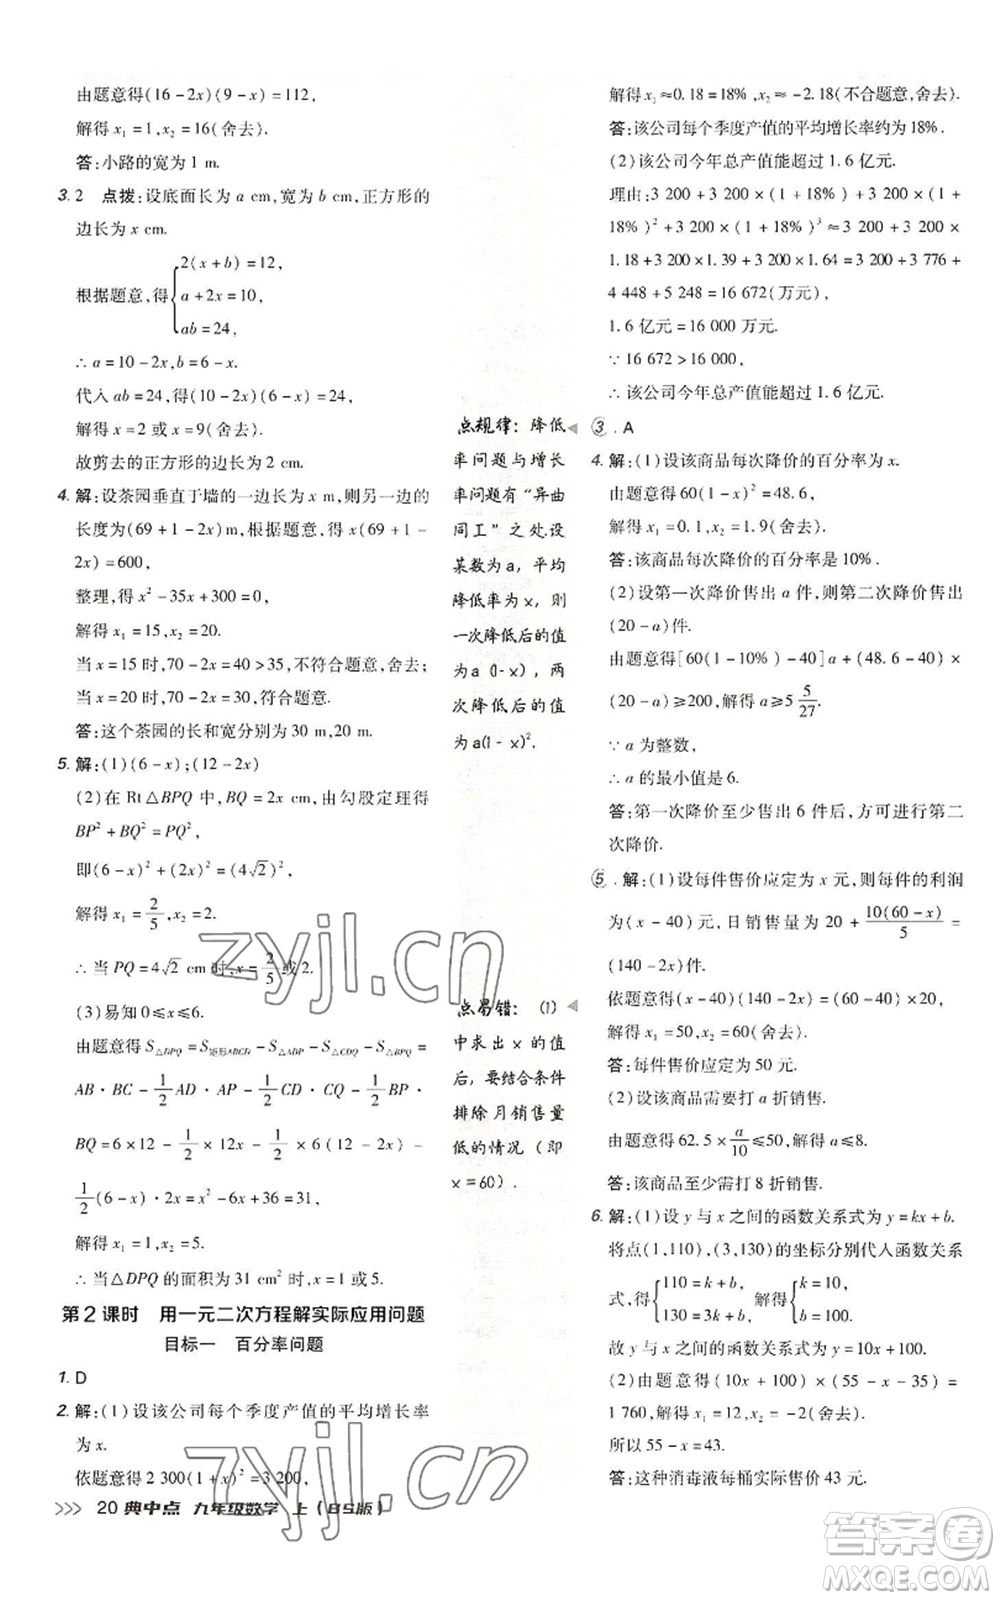 由题意得(16-2x)(9-x)=112,
解得 x₁=1,x₂=16(舍去).
答:小路的宽为 1 m.
3. 2 点拨:设底面长为 a cm,宽为 b cm,正方形的
边长为 x cm.
根据题意,得{2(x+b)=12,
a+2x=10,
ab=24,
∴a=10-2x,b=6-x.
代入 ab=24,得(10-2x)(6-x)=24,
解得 x=2 或 x=9(舍去).
故剪去的正方形的边长为 2 cm.
4. 解:设茶园垂直于墙的一边长为 x m,则另一边的
长度为(69+1-2x)m,根据题意,得 x(69+1-
2x)=600,
整理,得 x²-35x+300=0,
解得 x₁=15,x₂=20.
当 x=15 时,70-2x=40>35,不符合题意,舍去;
当 x=20 时,70-2x=30,符合题意.
答:这个茶园的长和宽分别为 30 m,20 m.
5. 解:(1)(6-x);(12-2x)
(2)在 Rt△BPQ 中,BQ=2x cm,由勾股定理得
BP²+BQ²=PQ²,
即(6-x)²+(2x)²=(4√2)²,
解得 x₁=2/5,x₂=2.
∴当 PQ=4√2 cm 时,x=2/5或2.
(3)易知 0≤x≤6.
由题意得 S△DPQ=S矩形ABCD-S△ADP-S△CDQ-S△BPQ=
AB·BC-1/2AD·AP-1/2CD·CQ-1/2BP·
BQ=6×12-1/2×12x-1/2×6(12-2x)-
1/2(6-x)·2x=x²-6x+36=31,
解得 x₁=1,x₂=5.
∴当△DPQ 的面积为 31 cm² 时,x=1或5.
第2课时 用一元二次方程解实际应用问题
目标一 百分率问题
1. D
2. 解:(1)设该公司每个季度产值的平均增长率
为 x.
依题意得 2 300(1+x)²=3 200,
>>> 20 典中点 九年级数学 上(BS版)
点规律:降低
率问题与增长
率问题有“异曲
同工”之处设
某数为a,平均
降低率为x,则
一次降低后的值
为a(1-x),两
次降低后的值
为a(1-x)².
点易错:(1)
中求出x的值
后,要结合条件
排除月销售量
低的情况(即
x=60).
解得 x₁≈0.18=18%,x₂≈-2.18(不合题意,舍去).
答:该公司每个季度产值的平均增长率约为 18%.
(2)该公司今年总产值能超过 1.6 亿元.
理由:3 200+3 200×(1+18%)+3 200×(1+
18%)²+3 200×(1+18%)³≈3 200+3 200×
1.18+3 200×1.39+3 200×1.64=3 200+3 776+
4 448+5 248=16 672(万元),
1.6 亿元=16 000 万元.
∵16 672>16 000,
∴该公司今年总产值能超过 1.6 亿元.
3. A
4. 解:(1)设该商品每次降价的百分率为 x.
由题意得 60(1-x)²=48.6,
解得 x₁=0.1,x₂=1.9(舍去).
答:该商品每次降价的百分率是 10%.
(2)设第一次降价售出 a 件,则第二次降价售出
(20-a)件.
由题意得[60(1-10%)-40]a+(48.6-40)×
(20-a)≥200,解得 a≥5 5/27.
∵a 为整数,
∴a 的最小值是 6.
答:第一次降价至少售出 6 件后,方可进行第二
次降价.
5. 解:(1)设每件售价应定为 x 元,则每件的利润
为(x-40)元,日销售量为 20+10(60-x)/5=
(140-2x)件.
依题意得(x-40)(140-2x)=(60-40)×20,
解得 x₁=50,x₂=60(舍去).
答:每件售价应定为 50 元.
(2)设该商品需要打 a 折销售.
由题意得 62.5×a/10≤50,解得 a≤8.
答:该商品至少需打 8 折销售.
6. 解:(1)设 y 与 x 之间的函数关系式为 y=kx+b.
将点(1,110),(3,130)的坐标分别代入函数关系
式,得{110=k+b,
130=3k+b,解得{k=10,
b=100.
故 y 与 x 之间的函数关系式为 y=10x+100.
(2)由题意得(10x+100)×(55-x-35)=
1 760,解得 x₁=12,x₂=-2(舍去).
所以 55-x=43.
答:这种消毒液每桶实际售价 43 元.
zyjl.cn
zyjl.cn
答案圈
MXQE.COM